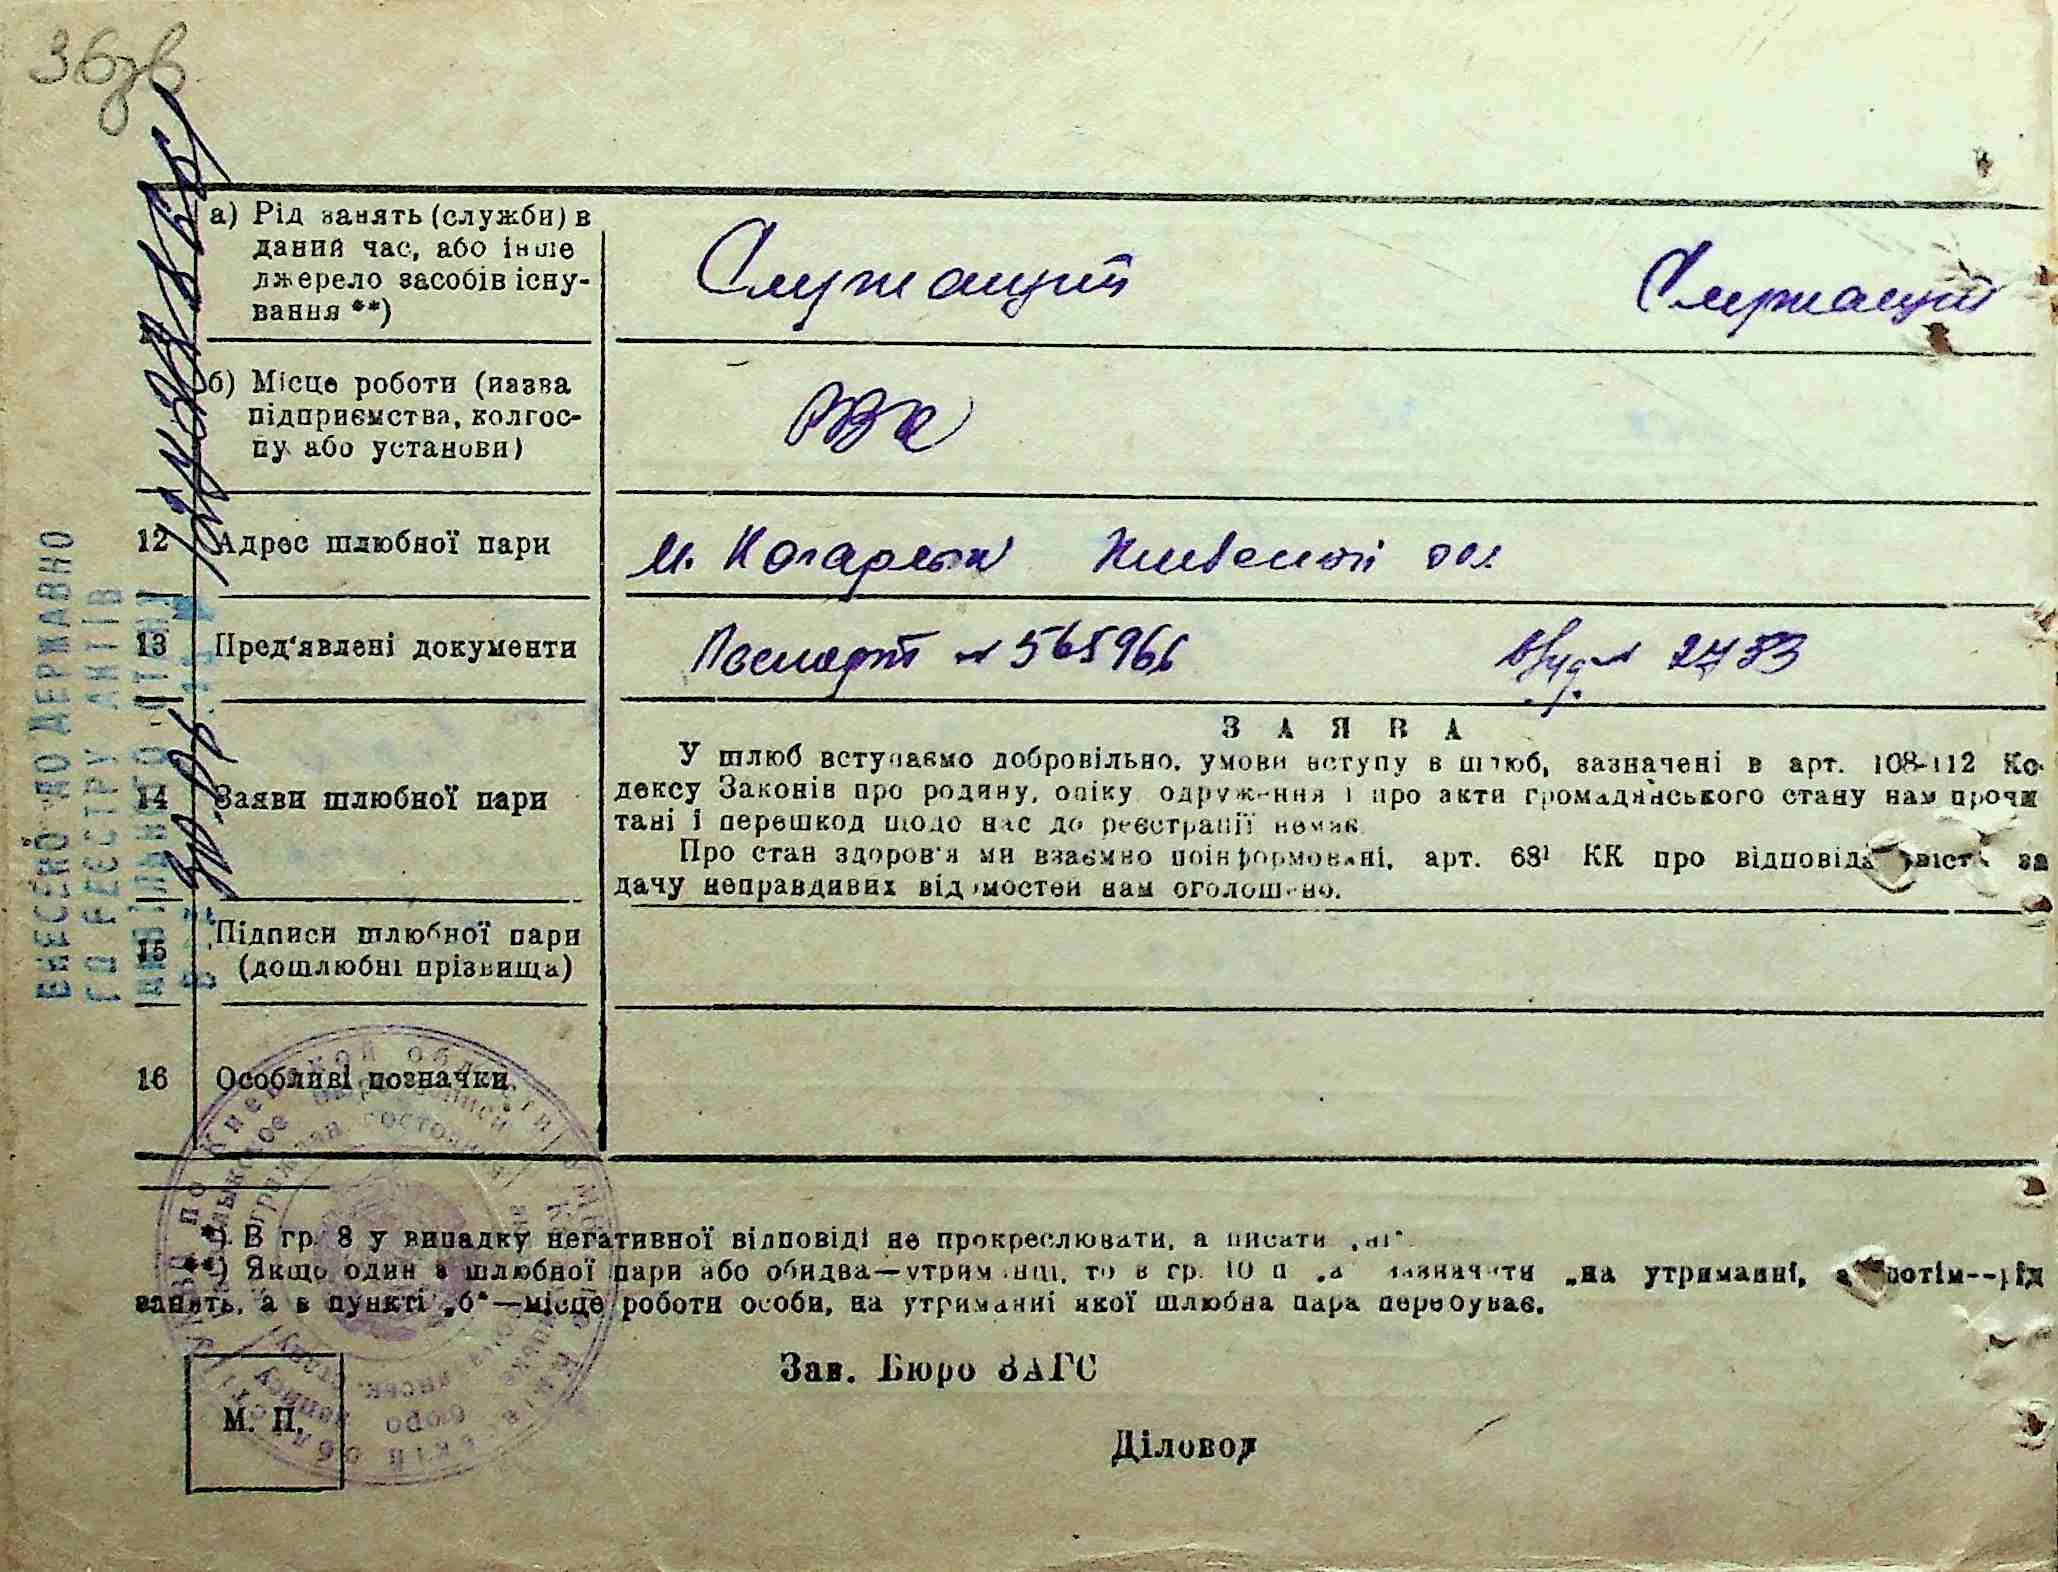 36зв
а) Рід занять (служби) в
даний час, або інше
джерело засобів існу-
вання **)
Служащий Служащий
б) Місце роботи (назва
підприємства, колгос-
пу або установи)
РВК
12 Адрес шлюбної пари
м. Кагарлык Киевской обл
13 Пред'явлені документи
Паспорт № 565966 № 2733
14 Заяви шлюбної пари
ЗАЯВА
У шлюб вступаємо добровільно, умови вступу в шлюб, зазначені в арт. 108-112 Ко-
дексу Законів про родину, опіку, одруження і про акти громадянського стану нам прочи
тані і перешкод щодо нас до реєстрації немає.
Про стан здоров'я ми взаємно поінформовані, арт. 68¹ КК про за
дачу неправдивих відомостей нам оголошено.
15 Підписи шлюбної пари
(дошлюбні прізвища)
16 Особливі позначки
*) В гр. 8 у випадку негативної відповіді не прокреслювати, а писати „ні“.
**) Якщо один з шлюбної пари або обидва—утриманці, то в гр. 10 п „а“ зазначити „на утриманні, а потім--рід
занять, а в пункті „б“—місце роботи особи, на утриманні якої шлюбна пара перебуває.
Зав. Бюро ЗАГС
М. П.
Діловод
ВНЕСЕНО ДО ДЕРЖАВНО
ГО РЕЄСТРУ АКТІВ
ЦИВІЛЬНОГО СТАНУ